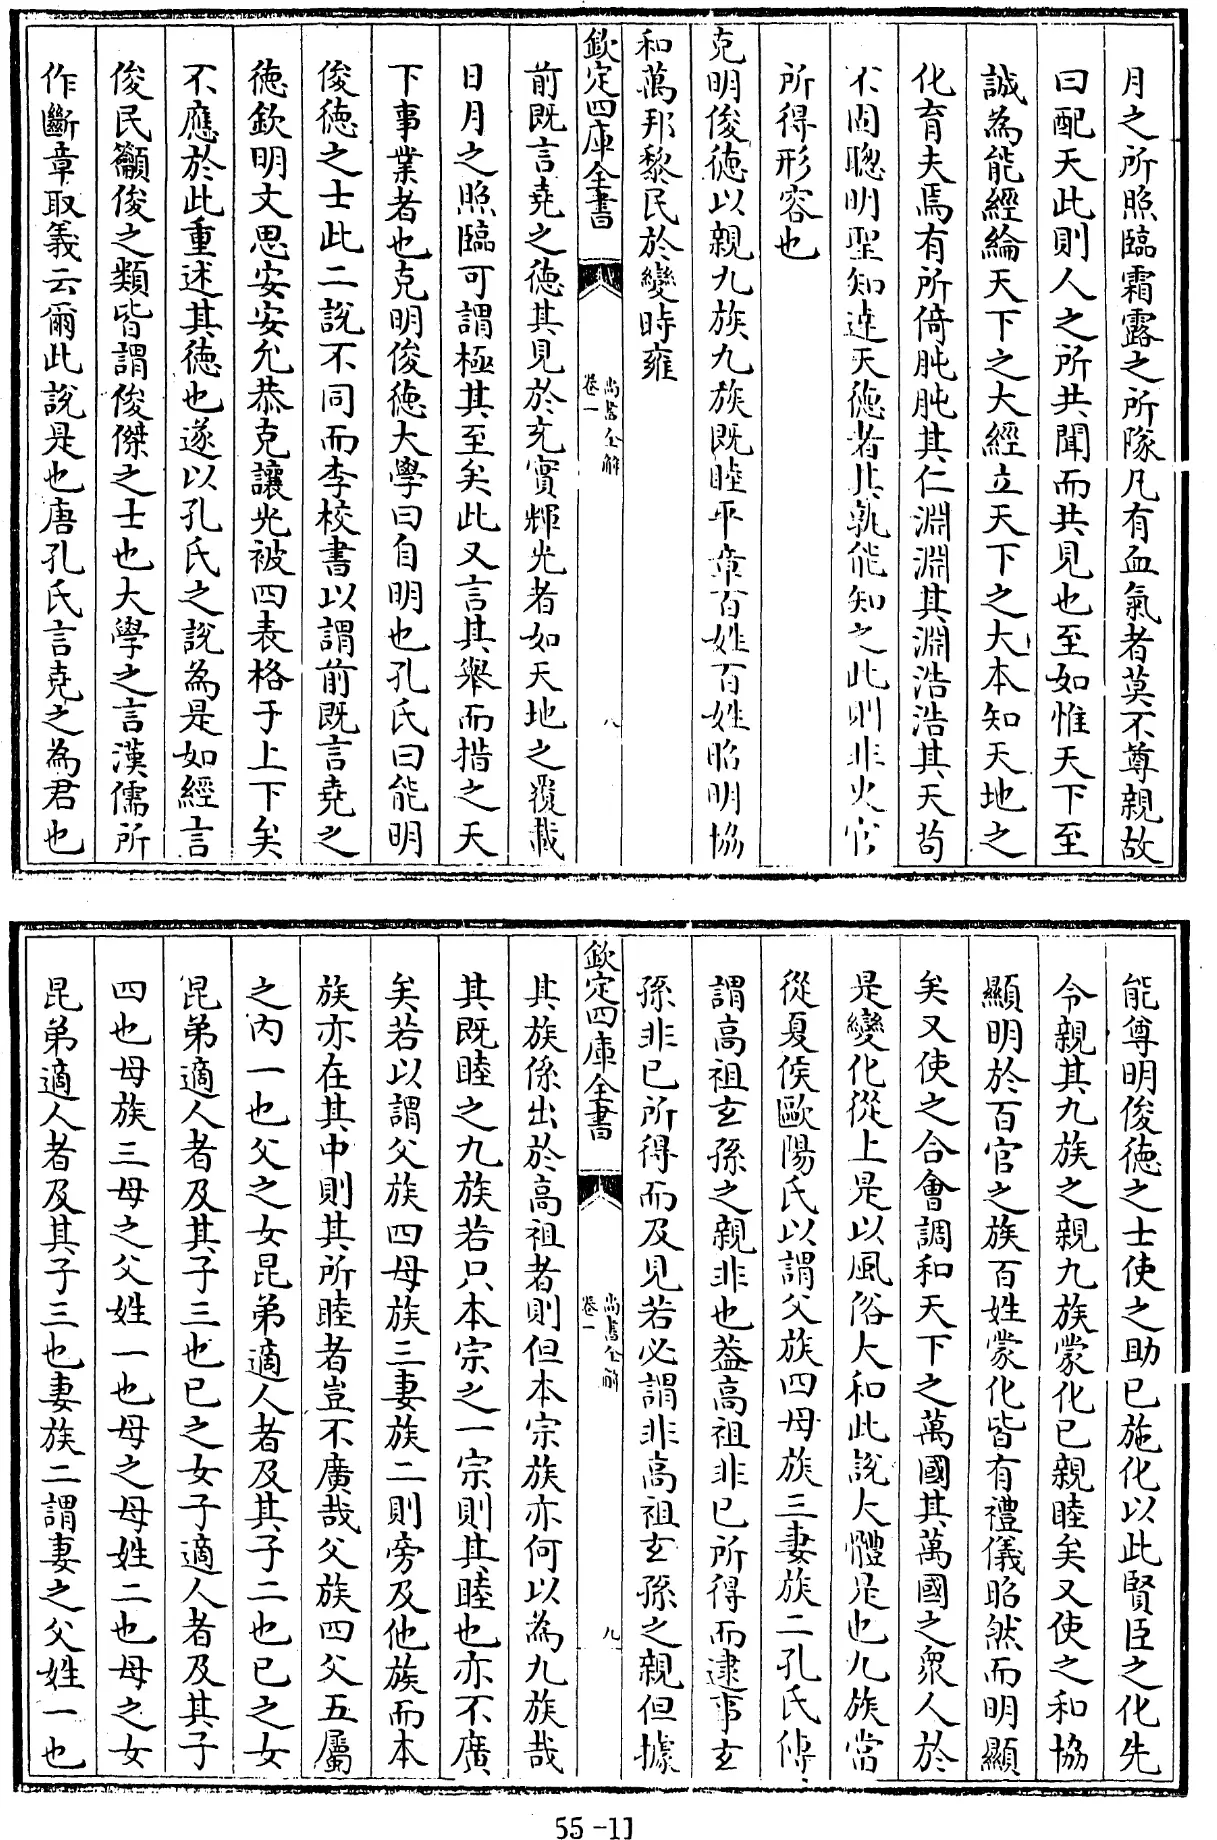 月之所照臨霜露之所隊凡有血氣者莫不尊親故
曰配天此則人之所共聞而共見也至如惟天下至
誠為能經綸天下之大經立天下之大本知天地之
化育夫焉有所倚肫肫其仁淵淵其淵浩浩其天苟
不固聰明聖知達天德者其孰能知之此則非火官
所得形容也
克明俊德以親九族九族既睦平章百姓百姓昭明協
和萬邦黎民於變時雍
欽定四庫全書
尚書全解
卷一
八
前既言堯之德其見於充實輝光者如天地之覆載
日月之照臨可謂極其至矣此又言其舉而措之天
下事業者也克明俊德大學曰自明也孔氏曰能明
俊德之士此二說不同而李校書以謂前既言堯之
德欽明文思安安允恭克讓光被四表格于上下矣
不應於此重述其德也遂以孔氏之說為是如經言
俊民籲俊之類皆謂俊傑之士也大學之言漢儒所
作斷章取義云爾此說是也唐孔氏言堯之為君也
能尊明俊德之士使之助已施化以此賢臣之化先
令親其九族之親九族蒙化已親睦矣又使之和協
顯明於百官之族百姓蒙化皆有禮儀昭然而明顯
矣又使之合會調和天下之萬國其萬國之衆人於
是變化從上是以風俗大和此說大體是也九族當
從夏侯歐陽氏以謂父族四母族三妻族二孔氏傳
謂高祖玄孫之親非也葢高祖非已所得而逮事玄
孫非已所得而及見若必謂非高祖玄孫之親但據
欽定四庫全書
尚書全解
卷一
九
其族係出於高祖者則但本宗族亦何以為九族哉
其既睦之九族若只本宗之一宗則其睦也亦不廣
矣若以謂父族四母族三妻族二則旁及他族而本
族亦在其中則其所睦者豈不廣哉父族四父五屬
之內一也父之女昆弟適人者及其子二也已之女
昆弟適人者及其子三也已之女子適人者及其子
四也母族三母之父姓一也母之母姓二也母之女
昆弟適人者及其子三也妻族二謂妻之父姓一也
55-11